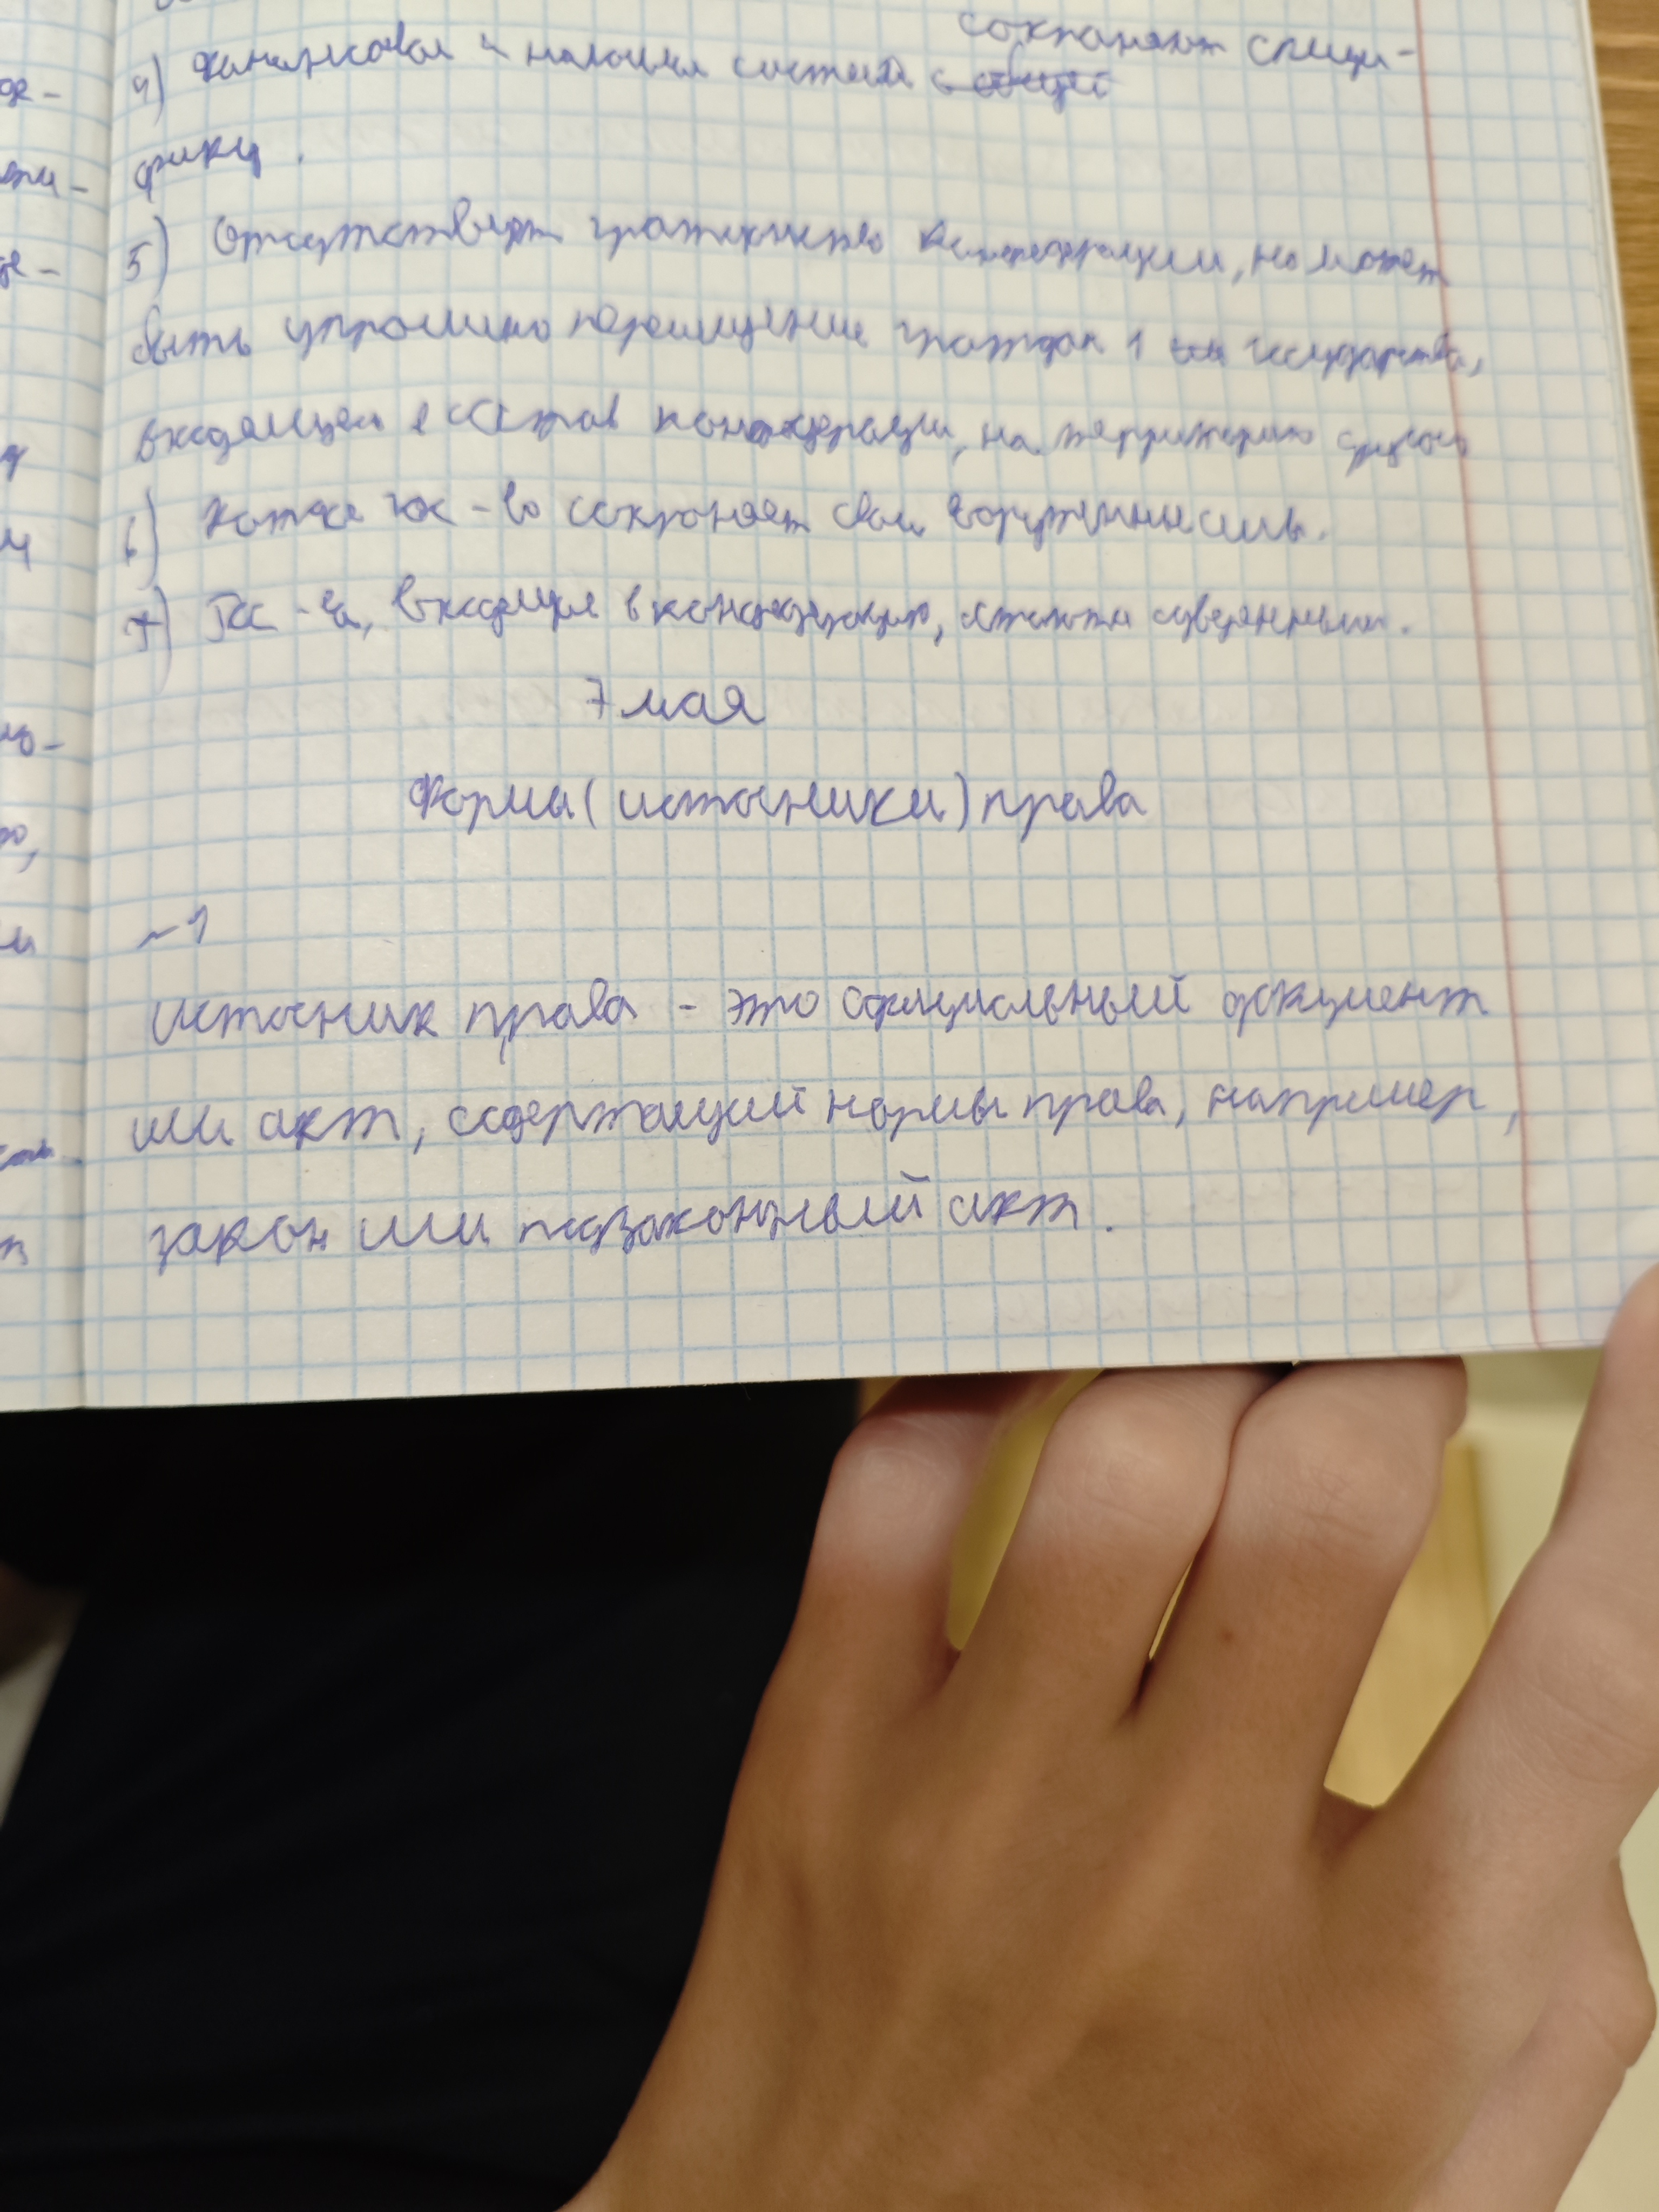 сохраняют специ-
4) Финансовая и налоговая система с общей
фику.
5) Отсутствует гражданство конфедерации, но может
быть упрощено перемещение граждан 1 государства,
входящего в состав конфедерации, на территорию другого
6) Каждое гос-во сохраняет свои вооружённые силы.
7) Гос-ва, входящие в конфедерацию, остаются суверенными.
7 мая
Формы (источники) права
~1
Источник права - это официальный документ
или акт, содержащий нормы права, например,
закон или подзаконный акт.